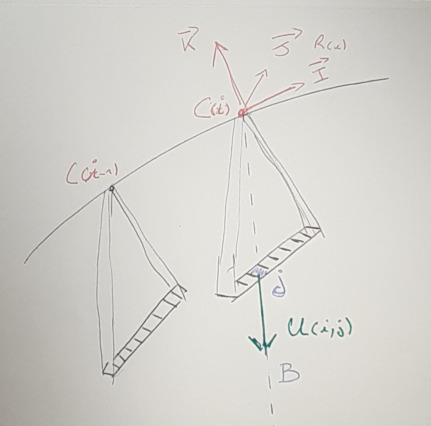 K
J R(i)
I
C(i)
C(i-1)
j
U(i,j)
B